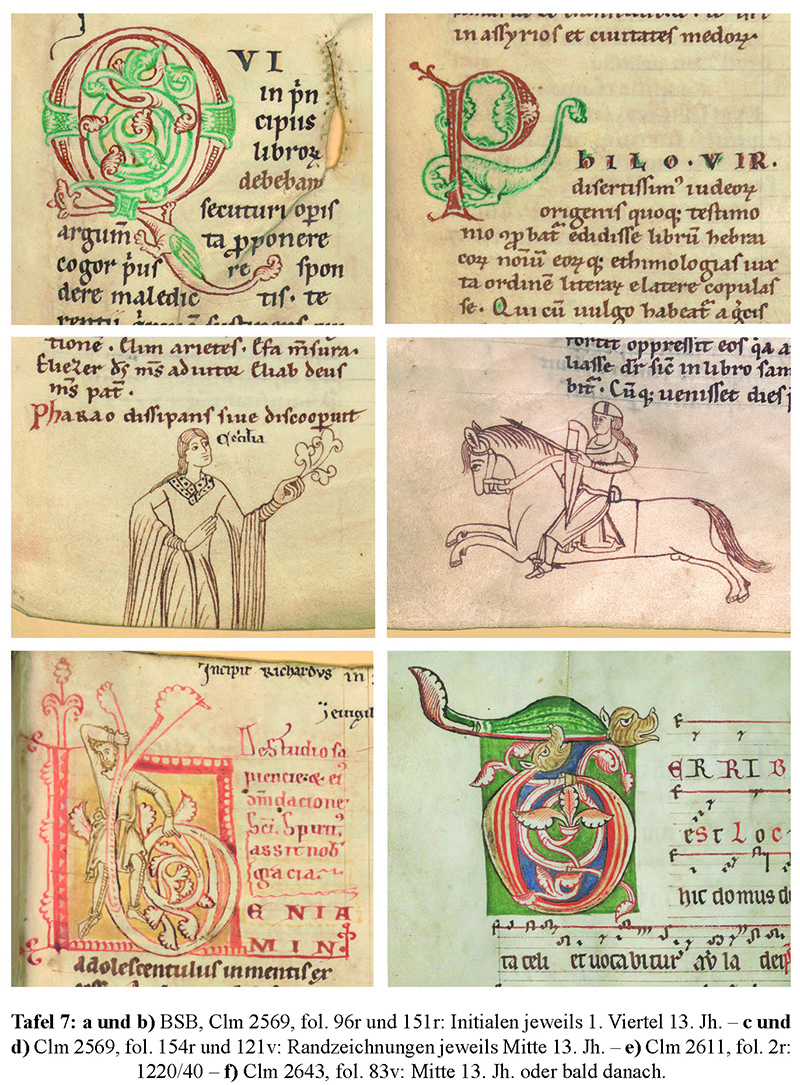 VI
in p̄n
cipiis
libroꝝ
debebam
secuturi op̄is
argum̄ ta p̱ponere
cogor p̄us re spon
dere maledic tis. te
in assyrios et ciuitates medoꝝ.
P
hILO. VIR.
disertissimꝰ iudeoꝝ
origenis quoq; testimo
nio ꝓbat̄ edidisse librū hebrai
coꝝ noīū eoꝝq; ethimologias iux
ta ordinē literaꝝ e latere copulas
se. Qui cū uulgo habeat̄ a
tione. Elim arietes. Efa m̄sura.
Eliezer d̄s m̄s adiutor Eliab deus
m̄s pat̄.
Pharao dissipans siue discooperuit
Cecilia
oppressit eos
liasse dr̄ sic̄ in libro sam
bit̄. Cūq; uenisset dies
Incipit Richardvs in
De studio sa
piencie. & ei
cōm̄dacione
Sc̄i. Spiritꝰ
assit nob̄
gracia
B
ENIA
MIN
adolescentulus in mentis ex
T
ERRIB
est Loc
hic domus de
ta celi et uocabitur au la dei
Tafel 7: a und b) BSB, Clm 2569, fol. 96r und 151r: Initialen jeweils 1. Viertel 13. Jh. – c und
d) Clm 2569, fol. 154r und 121v: Randzeichnungen jeweils Mitte 13. Jh. – e) Clm 2611, fol. 2r:
1220/40 – f) Clm 2643, fol. 83v: Mitte 13. Jh. oder bald danach.